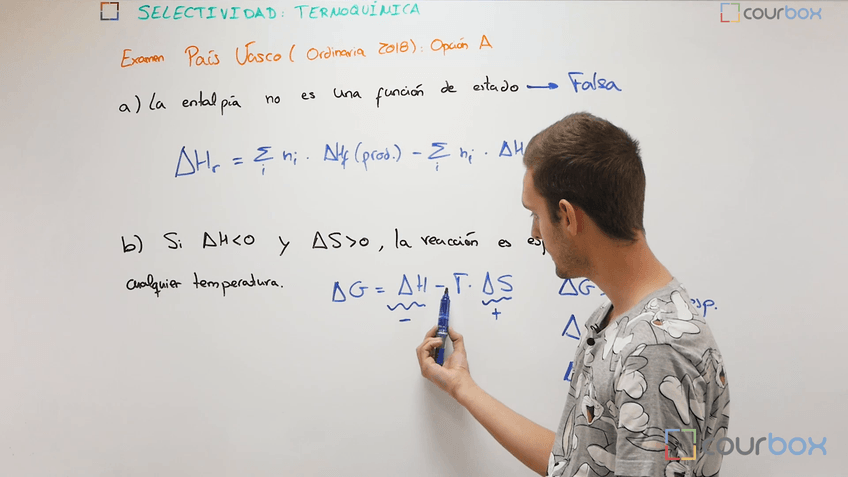 SELECTIVIDAD: TERMOQUÍMICA
courbox
Examen País Vasco (Ordinaria 2018): Opción A
a) La entalpía no es una función de estado → Falsa
ΔHr = Σi ni · ΔHf (prod.) - Σi ni · ΔH
b) Si ΔH<0 y ΔS>0, la reacción es esp
cualquier temperatura.
ΔG = ΔH - T · ΔS
- +
ΔG>
esp.
Δ
courbox